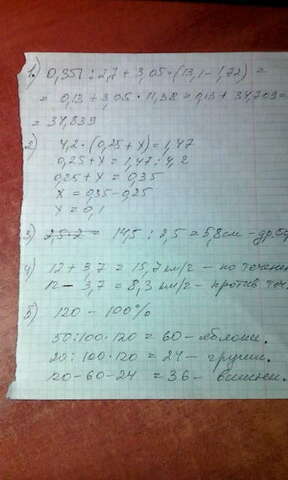 1) 0,351 : 2,7 + 3,05 · (13,1 - 1,72) =
= 0,13 + 3,05 · 11,38 = 0,13 + 34,709 =
= 34,839
2) 4,2 · (0,25 + x) = 1,47
0,25 + x = 1,47 : 4,2
0,25 + x = 0,35
x = 0,35 - 0,25
x = 0,1
3) 14,5 : 2,5 = 5,8 см -
4) 12 + 3,7 = 15,7 км/г - по течени
12 - 3,7 = 8,3 км/г - против теч
5) 120 - 100%
50 : 100 · 120 = 60 - яблони.
20 : 100 · 120 = 24 - груши.
120 - 60 - 24 = 36 - вишни.